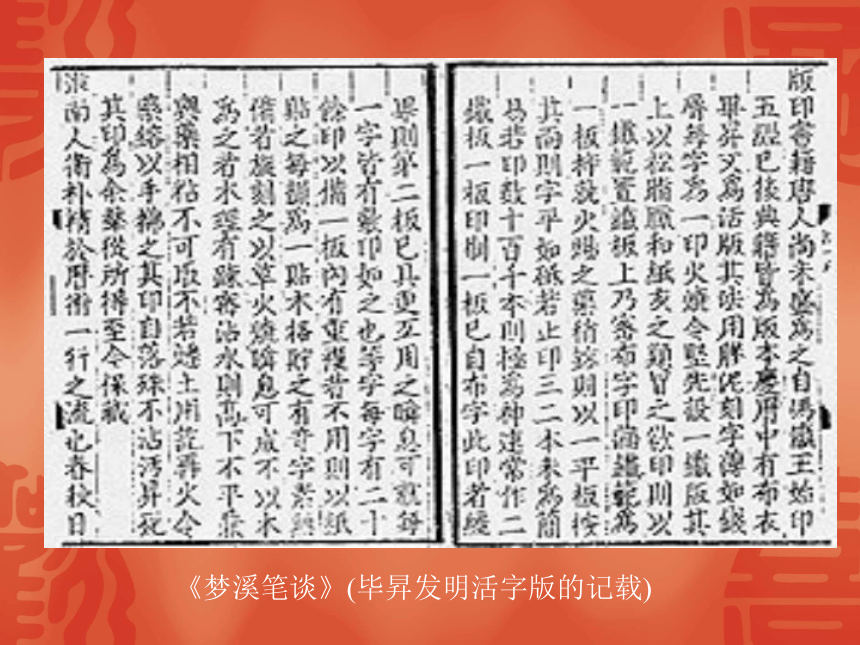 版印書籍唐人尚未盛為之自馮瀛王始印
五經已後典籍皆為版本慶曆中有布衣
畢昇又為活版其法用膠泥刻字薄如錢
脣每字為一印火燒令堅先設一鐵版其
上以松脂臘和紙灰之類冒之欲印則以
一鐵範置鐵板上乃密布字印滿鐵範為
一板持就火煬之藥稍鎔則以一平板按
其面則字平如砥若止印三二本未為簡
易若印數十百千本則極為神速常作二
鐵板一板印刷一板已自布字此印者纔
畢則第二板已具更互用之瞬息可就每
一字皆有數印如之也等字每字有二十
餘印以備一板內有重複者不用則以紙
貼之每韻為一貼木格貯之有奇字素無
備者旋刻之以草火燒瞬息可成不以木
為之者木理有踈密沾水則高下不平兼
與藥相粘不可取不若燔土用訖再火令
藥鎔以手拂之其印自落殊不沾污昇死
其印為余羣從所得至今保藏
淮南人衛朴精於曆術一行之流也春秋日
《梦溪笔谈》(毕昇发明活字版的记载)